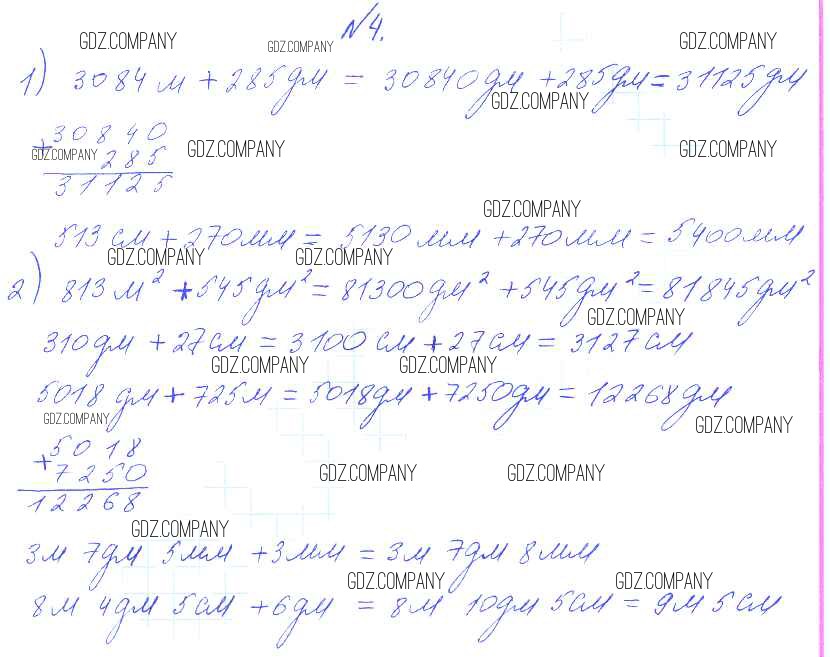 №4.
GDZ.COMPANY GDZ.COMPANY GDZ.COMPANY
1) 3084 м + 285 дм = 30840 дм + 285 дм = 31125 дм
GDZ.COMPANY
+30840
GDZ.COMPANY 285 GDZ.COMPANY GDZ.COMPANY
31125
GDZ.COMPANY
513 см + 270 мм = 5130 мм + 270 мм = 5400 мм
GDZ.COMPANY GDZ.COMPANY
2) 813 м² + 545 дм² = 81300 дм² + 545 дм² = 81845 дм²
GDZ.COMPANY
310 дм + 27 см = 3100 см + 27 см = 3127 см
GDZ.COMPANY GDZ.COMPANY
5018 дм + 725 м = 5018 дм + 7250 дм = 12268 дм
GDZ.COMPANY GDZ.COMPANY
+5018
7250 GDZ.COMPANY GDZ.COMPANY
12268
GDZ.COMPANY
3 м 7 дм 5 мм + 3 мм = 3 м 7 дм 8 мм
GDZ.COMPANY GDZ.COMPANY
8 м 4 дм 5 см + 6 дм = 8 м 10 дм 5 см = 9 м 5 см